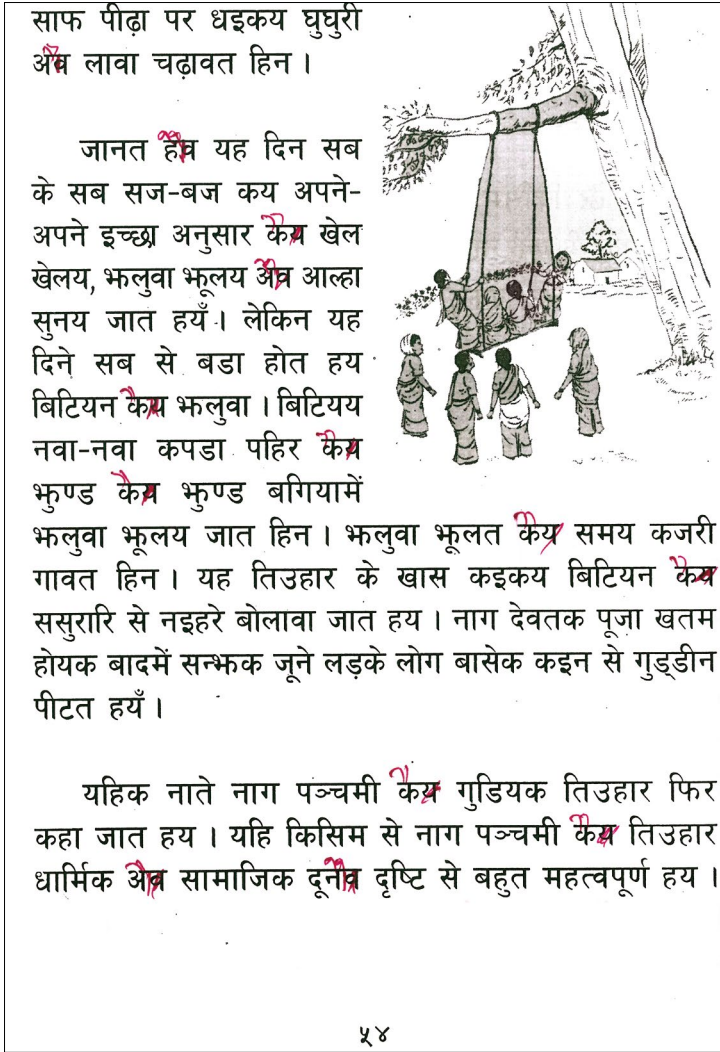 साफ पीढ़ा पर धइकय घुघुरी
अव लावा चढ़ावत हिन ।
जानत हव यह दिन सब
के सब सज-बज कय अपने-
अपने इच्छा अनुसार कय खेल
खेलय, झलुवा झूलय अव आल्हा
सुनय जात हयँ । लेकिन यह
दिने सब से बडा होत हय
बिटियन कय झलुवा । बिटियय
नवा-नवा कपडा पहिर कय
झुण्ड कय झुण्ड बगियामें
झलुवा झूलय जात हिन । झलुवा झूलत कय समय कजरी
गावत हिन । यह तिउहार के खास कइकय बिटियन कय
ससुरारि से नइहरे बोलावा जात हय । नाग देवतक पूजा खतम
होयक बादमें सन्झक जूने लड़के लोग बासेक कइन से गुड्डीन
पीटत हयँ ।
यहिक नाते नाग पञ्चमी कय गुडियक तिउहार फिर
कहा जात हय । यहि किसिम से नाग पञ्चमी कय तिउहार
धार्मिक अव सामाजिक दूनव दृष्टि से बहुत महत्वपूर्ण हय ।
५४